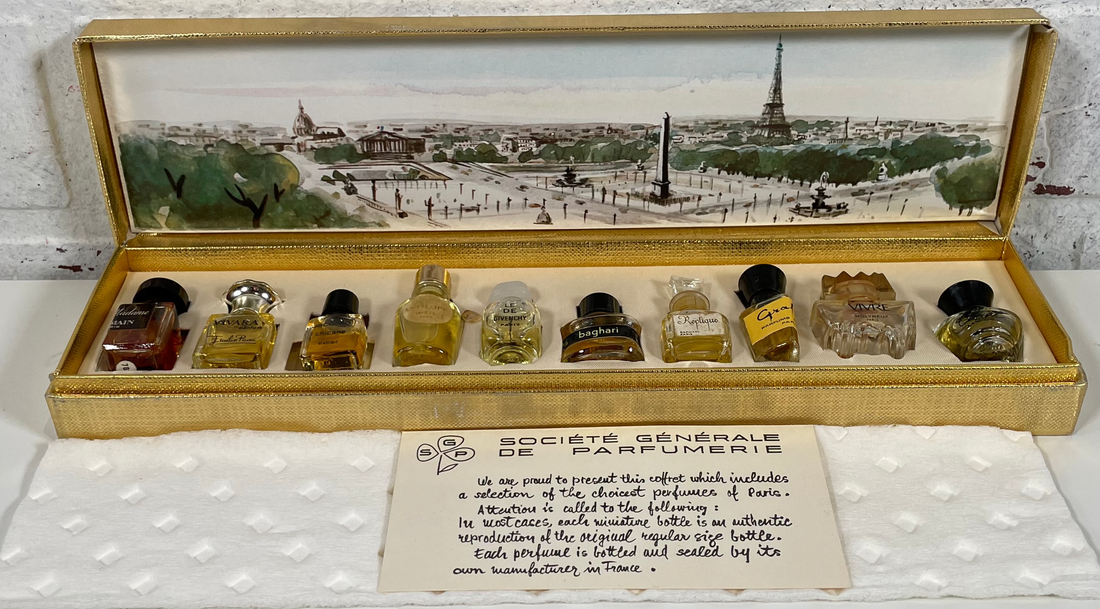 Madame
MAIN
VIVARA
Emilio Pucci
L'
DE
GIVENCHY
PARIS
baghari
Replique
Gra
PARFUMS
VIVRE
MOLYNEUX
SGP
SOCIÉTÉ GÉNÉRALE
DE PARFUMERIE
We are proud to present this coffret which includes
a selection of the choicest perfumes of Paris.
Attention is called to the following :
In most cases, each miniature bottle is an authentic
reproduction of the original regular size bottle.
Each perfume is bottled and sealed by its
own manufacturer in France.